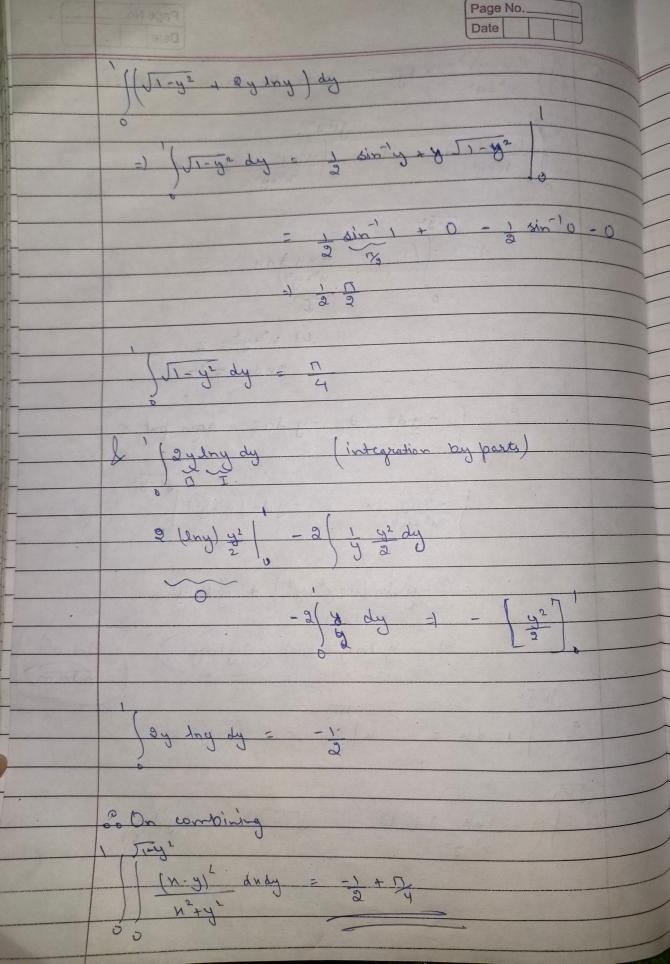 Page No.
Date
∫₀¹ (√1-y² + 2y lny) dy
=) ∫₀¹ √1-y² dy = 1/2 sin⁻¹y + y √1-y² |₀¹
= 1/2 sin⁻¹ 1 + 0 - 1/2 sin⁻¹ 0 - 0
π/2
=) 1/2 π/2
∫₀¹ √1-y² dy = π/4
& ∫₀¹ 2y lny dy (integration by parts)
II I
2 (lny) y²/2 |₀¹ - 2∫ 1/y y²/2 dy
0
-2∫₀¹ y/2 dy =) - [y²/2]₀¹
∫₀¹ 2y lny dy = -1/2
∴ On combining
∫₀¹ ∫₀^√1-y² (x-y)²/x²+y² dxdy = -1/2 + π/4